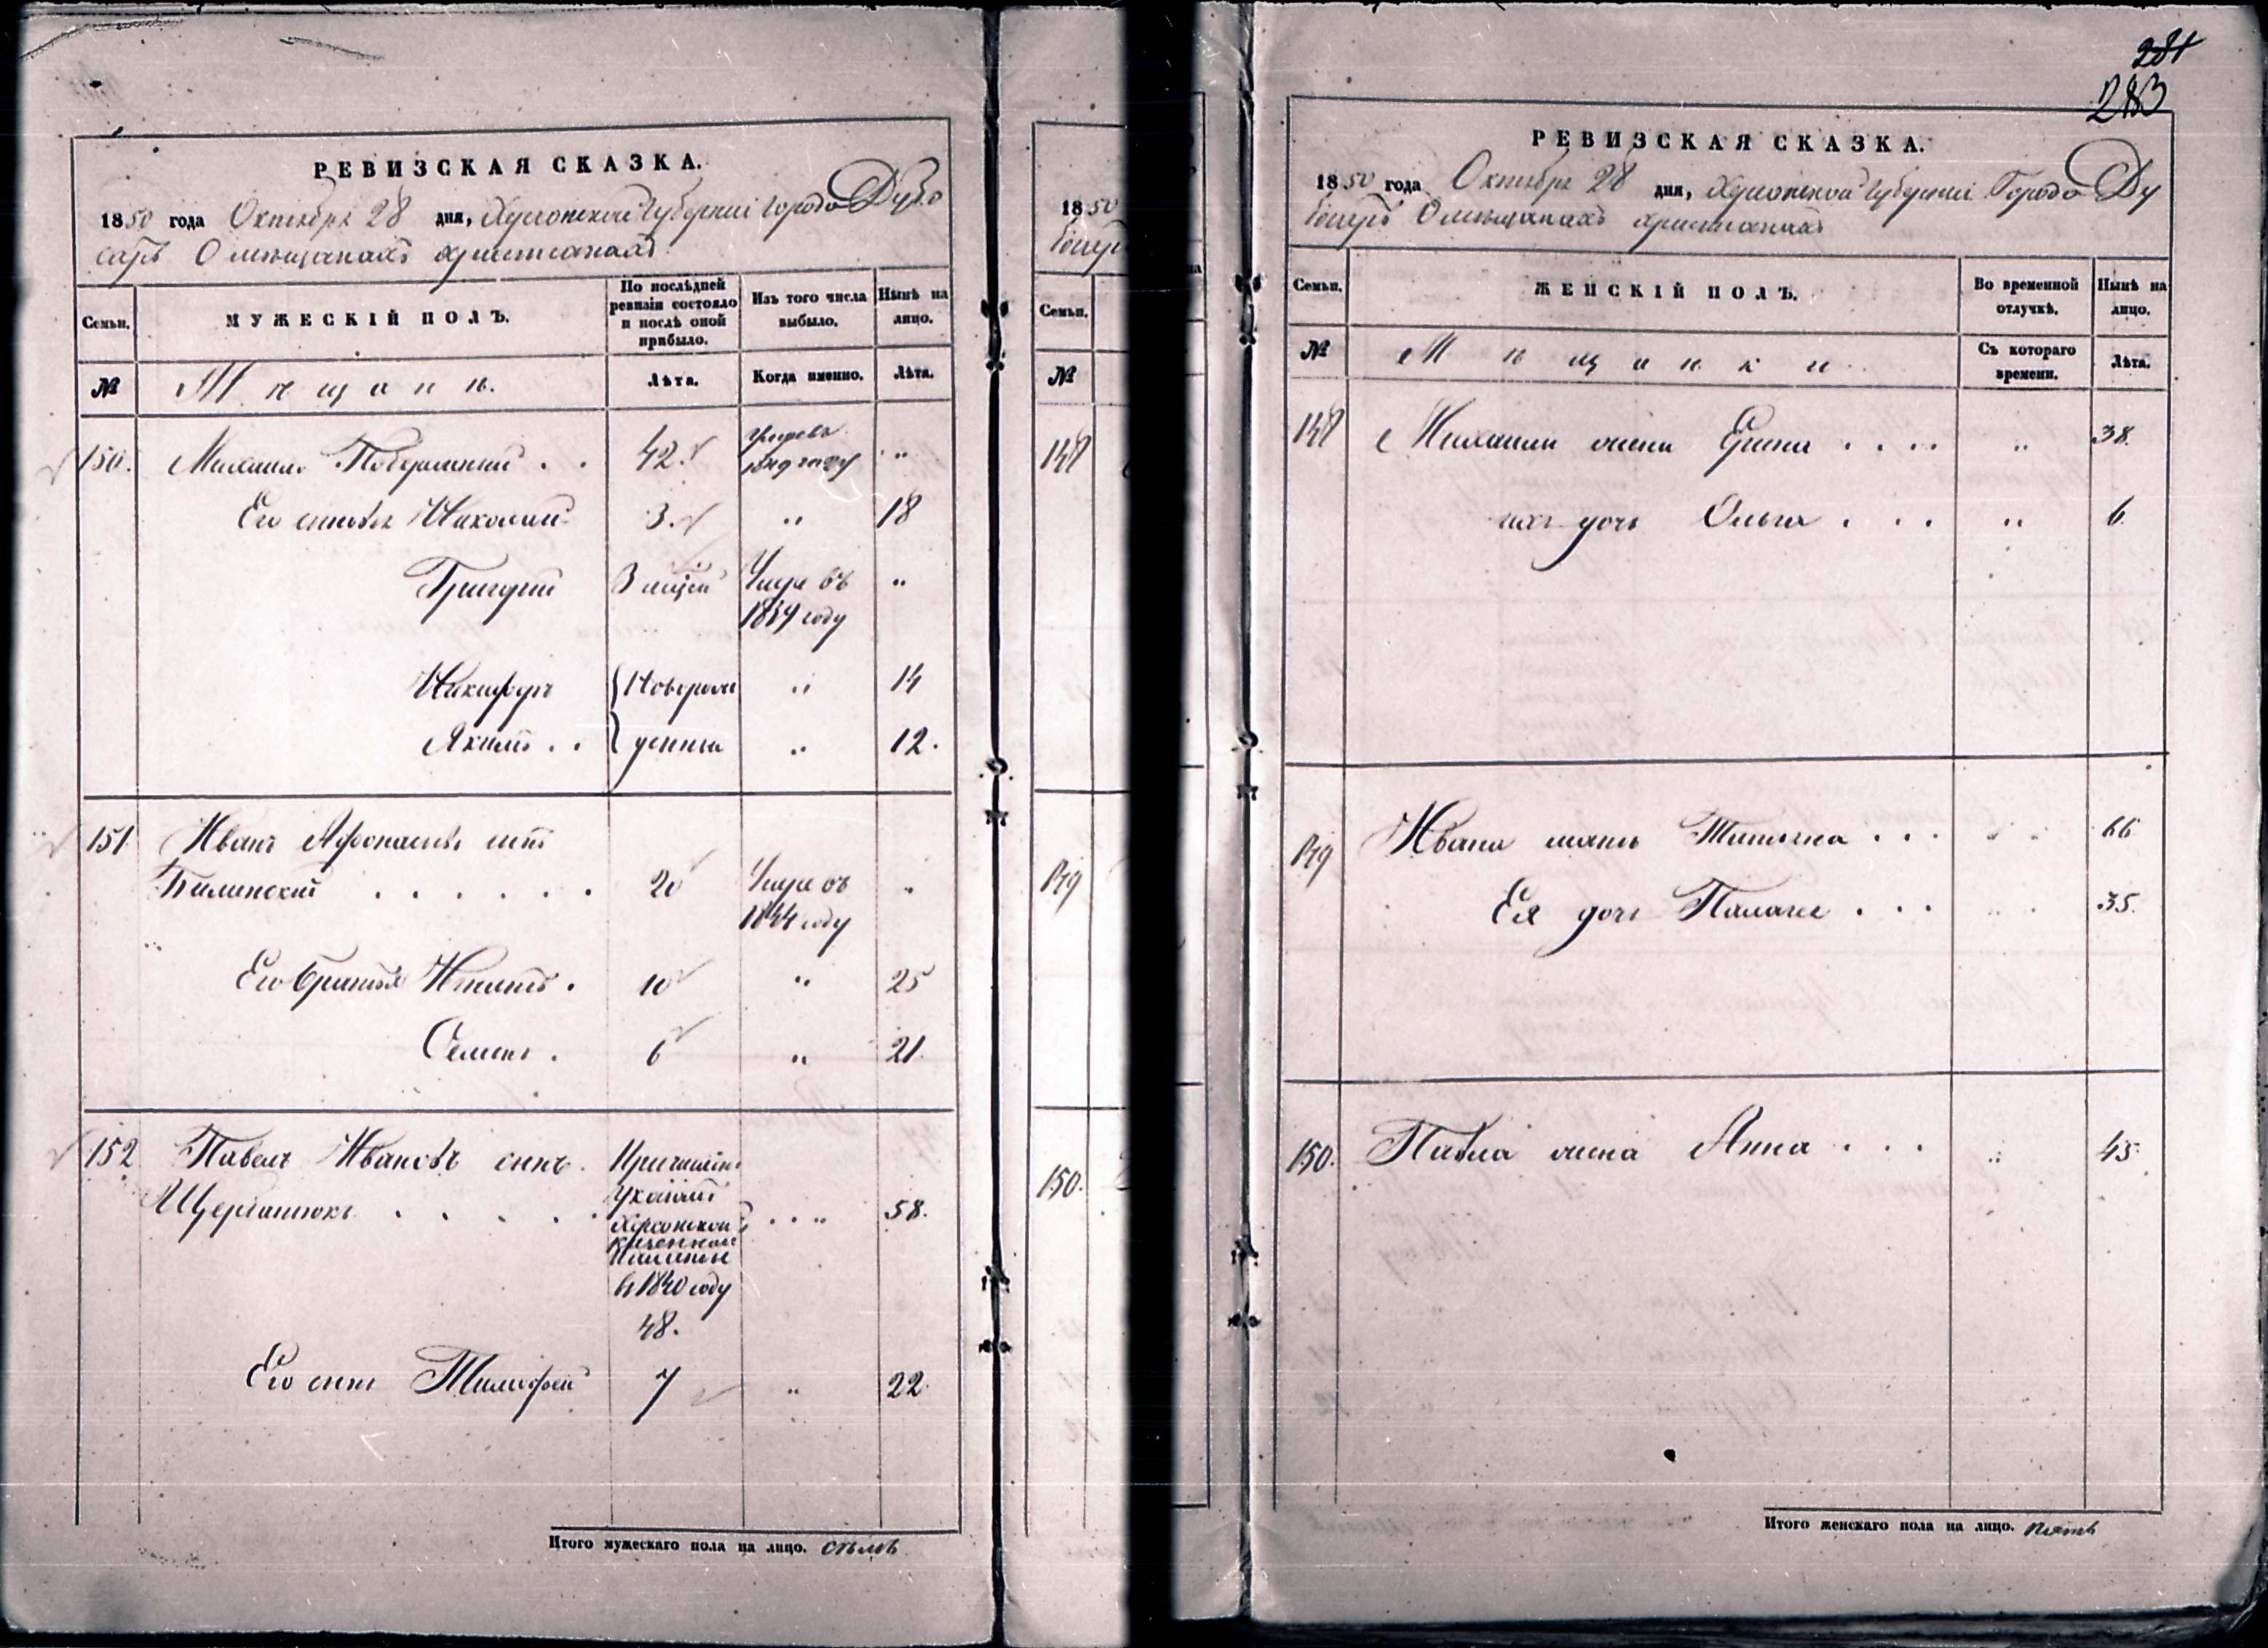 РЕВИЗСКАЯ СКАЗКА.
1850 года Октября 28 дня, Херсонской Губернии города Дубо
саръ О мѣщанахъ христианахъ
Семьи.
МУЖЕСКІЙ ПОЛЪ.
По послѣдней ревизіи состояло и послѣ оной прибыло.
Изъ того числа выбыло.
Нынѣ на лицо.
№
Мѣщане.
Лѣта.
Когда именно.
Лѣта.
150. Михаило . . 42. году "
Его сыновья Николай 3. " 18
Григорій 3 Умре въ "
1839 году
Никифоръ Новорож " 14
Якимъ . . денные " 12.
151 Иванъ Афонасьевъ сынъ
Билинский . . . . . . 20 Умре въ "
1844 году
Его братья Игнатъ . 10 " 25
Семенъ . 6 " 21
152 Павелъ Ивановъ сынъ. Причислен
Щербанюкъ . . . . . указомъ
Херсонской . . " 58.
казенной
Палаты
въ 1840 году
48.
Его сынъ Тимофей 7 " 22.
Итого мужескаго пола на лицо. семь
1850
Семьи.
№
148
149
150.
281
283
РЕВИЗСКАЯ СКАЗКА.
1850 года Октября 28 дня, Херсонской Губернии Города Ду
босаръ О мѣщанахъ христианахъ
Семьи.
ЖЕНСКІЙ ПОЛЪ.
Во временной отлучкѣ.
Нынѣ на лицо.
№
Мѣщанки
Съ котораго времени.
Лѣта.
148 Михаила жена . . . . " 38.
ихъ дочь Ольга . . . " 6
149 Ивана мать Татьяна . . . " 66
Ея дочь Палагея . . . " 35.
150. Павла жена Анна . . . " 45.
Итого женскаго пола на лицо. пять